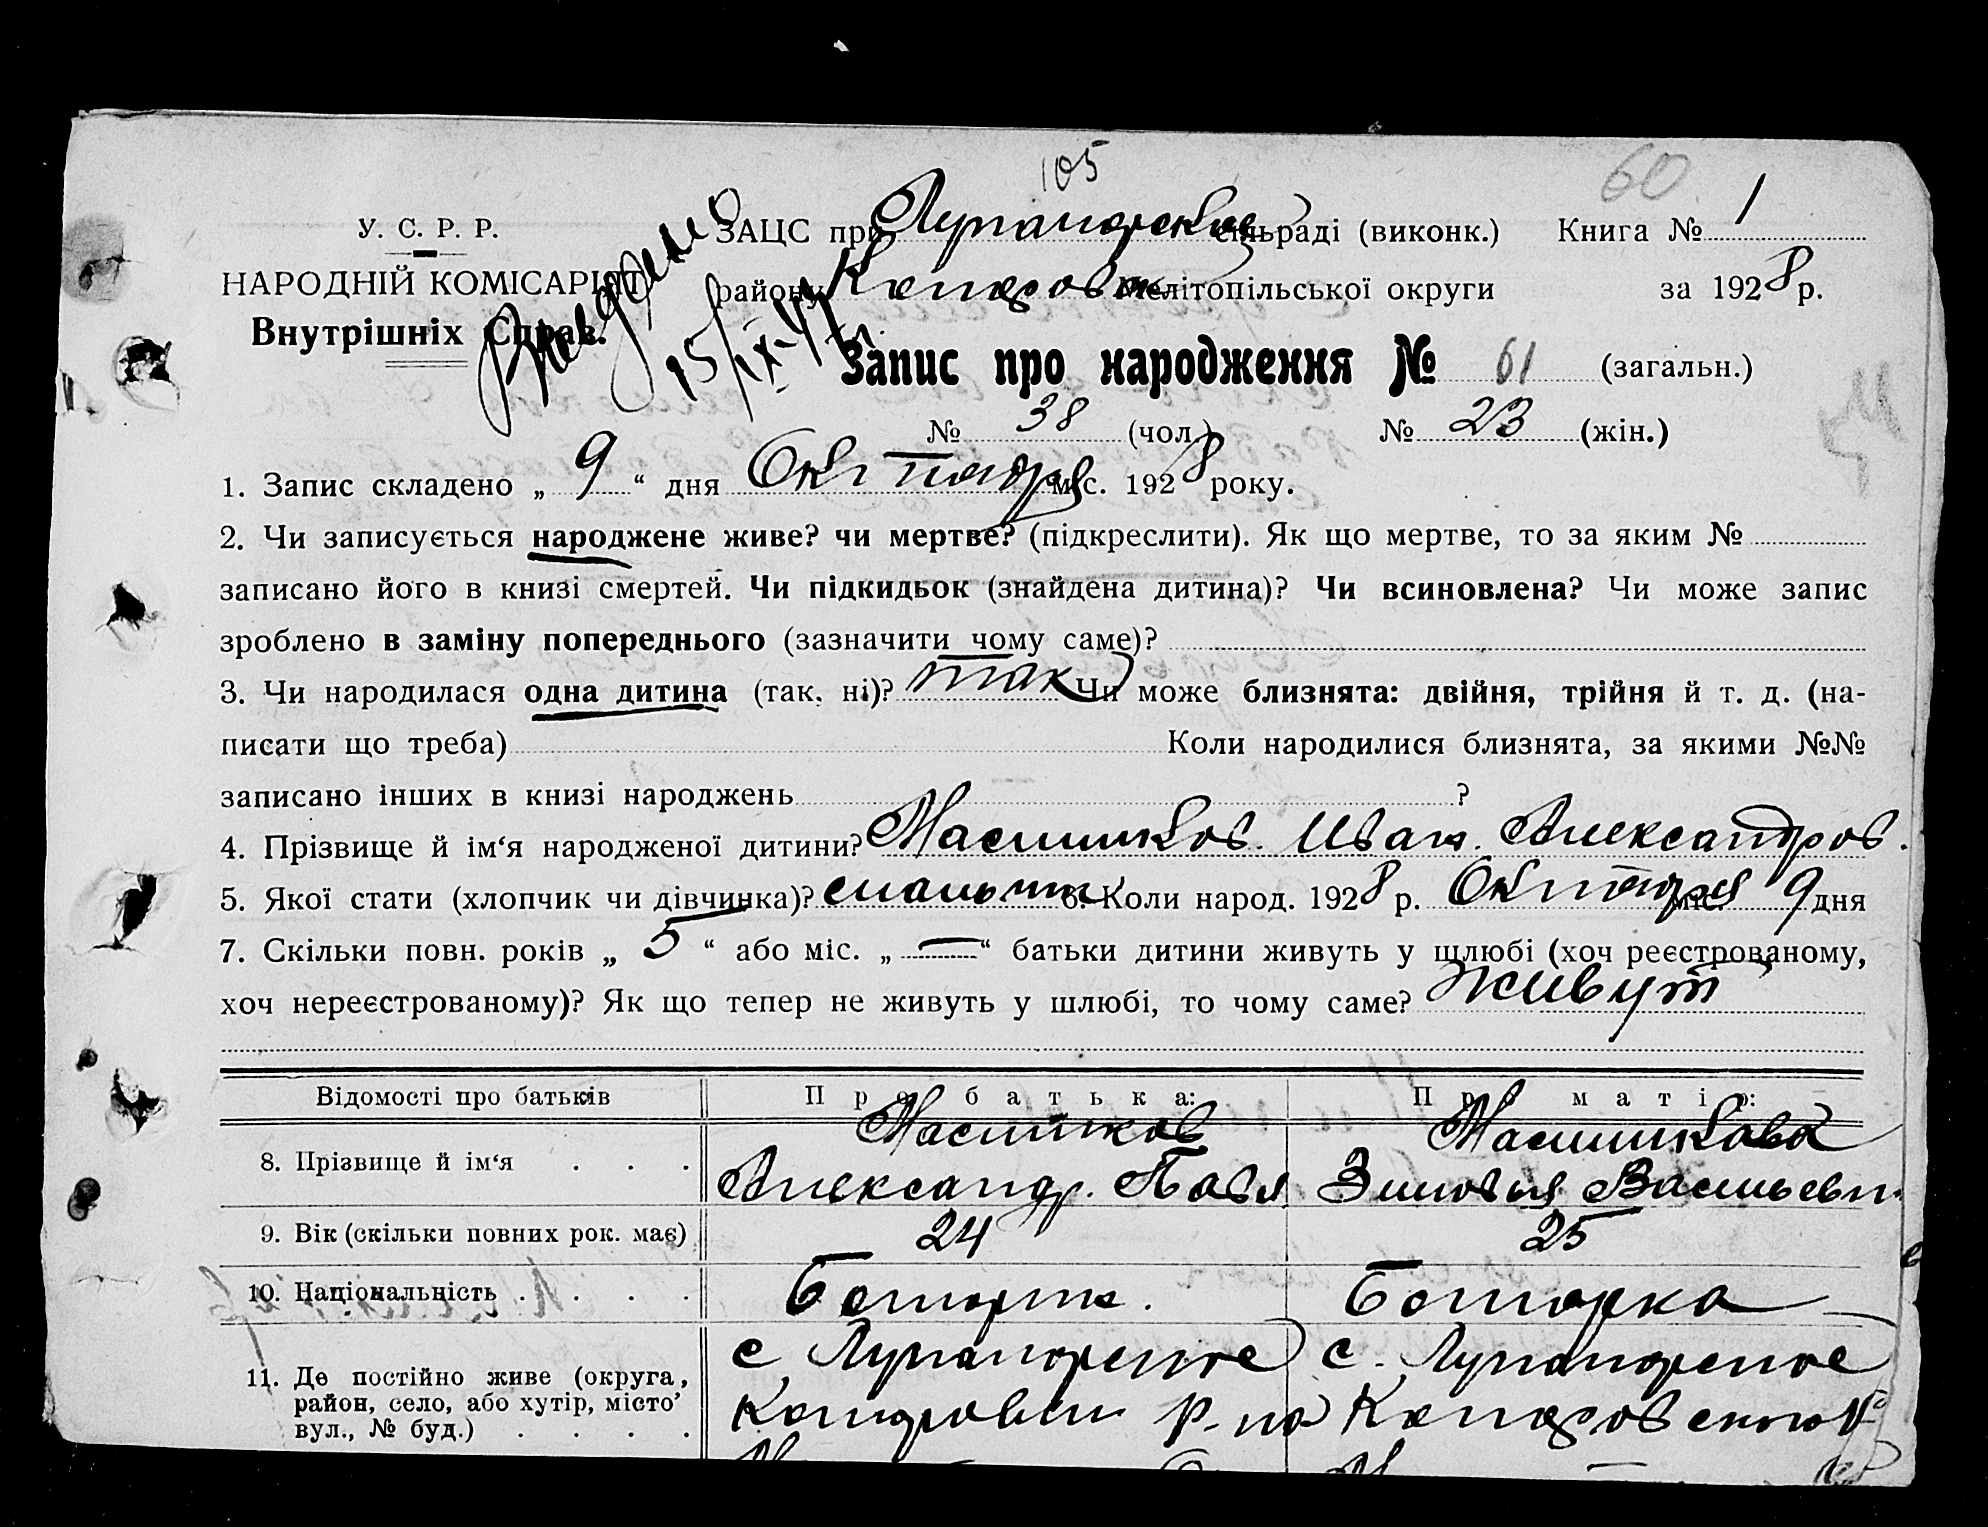 105
60
У. С. Р. Р.
НАРОДНІЙ КОМІСАРІЯТ
Внутрішніх Справ.
15/IX-47
ЗАЦС при сільраді (виконк.) Книга № 1
району Мелітопільської округи за 1928 р.
Запис про народження № 61 (загальн.)
№ 38 (чол.) № 23 (жін.)
1. Запис складено „ 9 “ дня Октября міс. 1928 року.
2. Чи записується народжене живе? чи мертве? (підкреслити). Як що мертве, то за яким №
записано його в книзі смертей. Чи підкидьок (знайдена дитина)? Чи всиновлена? Чи може запис
зроблено в заміну попереднього (зазначити чому саме)?
3. Чи народилася одна дитина (так, ні)? так Чи може близнята: двійня, трійня й т. д. (на-
писати що треба) Коли народилися близнята, за якими №№
записано інших в книзі народжень ?
4. Прізвище й ім‘я народженої дитини? Иван Александров.
5. Якої стати (хлопчик чи дівчинка)? 6. Коли народ. 1928 р. Октября міс. 9 дня
7. Скільки повн. років „ 5 “ або міс. „ — “ батьки дитини живуть у шлюбі (хоч реєстрованому,
хоч нереєстрованому)? Як що тепер не живуть у шлюбі, то чому саме? живут
Відомості про батьків Про батька: Про матір:
8. Прізвище й ім‘я . . .
Александр Павл Зиновия Васильевн.
9. Вік (скільки повних рок. має) 24 25
10. Національність . . . . Болгарин. Болгарка
11. Де постійно живе (округа, район, село, або хутір, місто’ вул., № буд.) . . . .